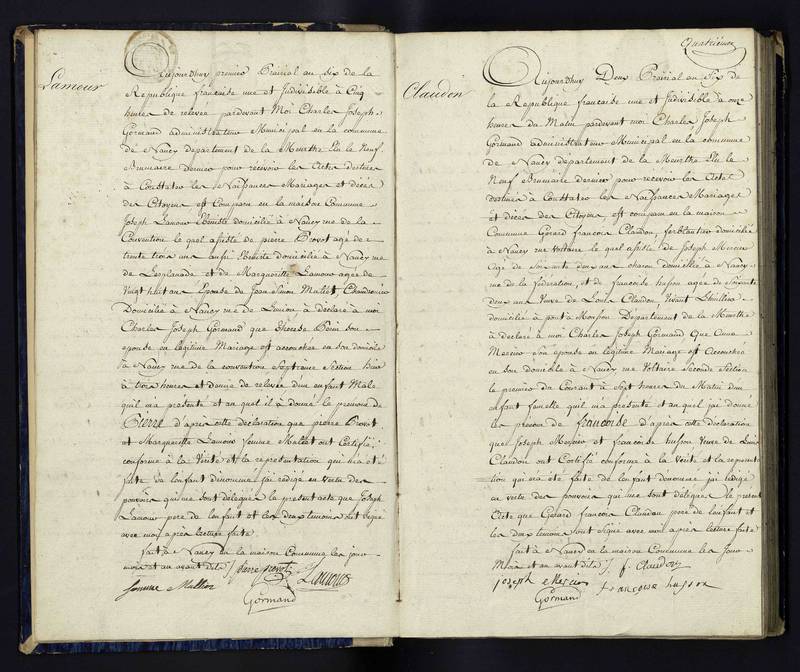 Lamour
Aujourdhuy premier Prairial an six de la
République francaise une et Indivisible à Cinq
heures de relevée pardevant Moi Charles Joseph
Gormand administrateur Municipal en la commune
de Nancy departement de la Meurthe Elu le Neuf
Brumaire dernier pour recevoir les Actes destinés
à Constater les Naissances Mariages et décès
des Citoyens est Comparu en la maison Commune
Joseph Lamour Ebeniste domicilié à Nancy rue de la
Convention le quel assisté de pierre Provot agé de
trente trois ans aussi Ebeniste domicilié à Nancy rue
de L'esplanade et de Margueritte Lamour agée de
Vingt huit ans Epouse de Jean Simon
Domicilié à Nancy rue de à déclaré a moi
Charles Joseph Gormand que Therese son
epouse en légitime Mariage est accouchée en son domicile
à Nancy rue de la convention Septieme Section hier
à trois heures et demie de relevée d'un enfant Male
qu'il m'a présenté et au quel il a donné le prenom de
Pierre d'après cette déclaration que pierre Provot
et Marguerite Lamour femme ont Certifié
conforme à la Verité et la representation qui m'a été
faite de l'enfant dénommé j'ai rédigé en vertu des
pouvoirs qui me sont délegués le present acte que Joseph
Lamour pere de l'enfant et les deux temoins ont signé
avec moi après lecture faite
fait à Nancy en la maison Commune les jour
mois et an avant dits / pierre provot Lamour
femme
Gormand
Quatrieme
Claudon
Aujourdhuy Deux Prairial an Six de
la République francaise une et Indivisible à onze
heures du Matin pardevant moi Charles Joseph
Gormand administrateur Municipal en la commune
de Nancy departement de la Meurthe Elu le
Neuf Brumaire dernier pour recevoir les Actes
destinés à Constater les Naissances Mariages
et décès des Citoyens, est comparu en la maison
Commune Gerard francois Claudon, ferblantier domicilié
à Nancy rue Voltaire le quel assisté de Joseph Mercier
agé de Soixante deux ans charon domicilié à Nancy
rue de la fédération, et de francoise husson agée de Soixante
deux ans Veuve de Louis Claudon Vivant
domiciliée à pont à Mousson Departement de la Meurthe
à déclaré à moi Charles Joseph Gormand Que
Mercier son epouse en légitime Mariage est Accouchée
en son domicile à Nancy rue Voltaire Seconde Section
le premier du Courant à Sept heures du Matin d'un
enfant femelle qu'il m'a presenté et au quel j'ai donné
les prénom de francoise d'après cette déclaration
que Joseph Mercier et francoise husson Veuve de Louis
Claudon ont Certifié conforme à la Verité et la représenta
tion qui m'a été faite de l'enfant dénommé j'ai rédigé
en vertu des pouvoirs qui me sont délégués le présent
Acte que Gérard francois Claudon pere de l'enfant et
les deux temoins ont signé avec moi après lecture faite
fait à Nancy en la maison Commune les Jour
Mois et an avant dits /. f. Claudon
joseph Mercier francoise husson
Gormand